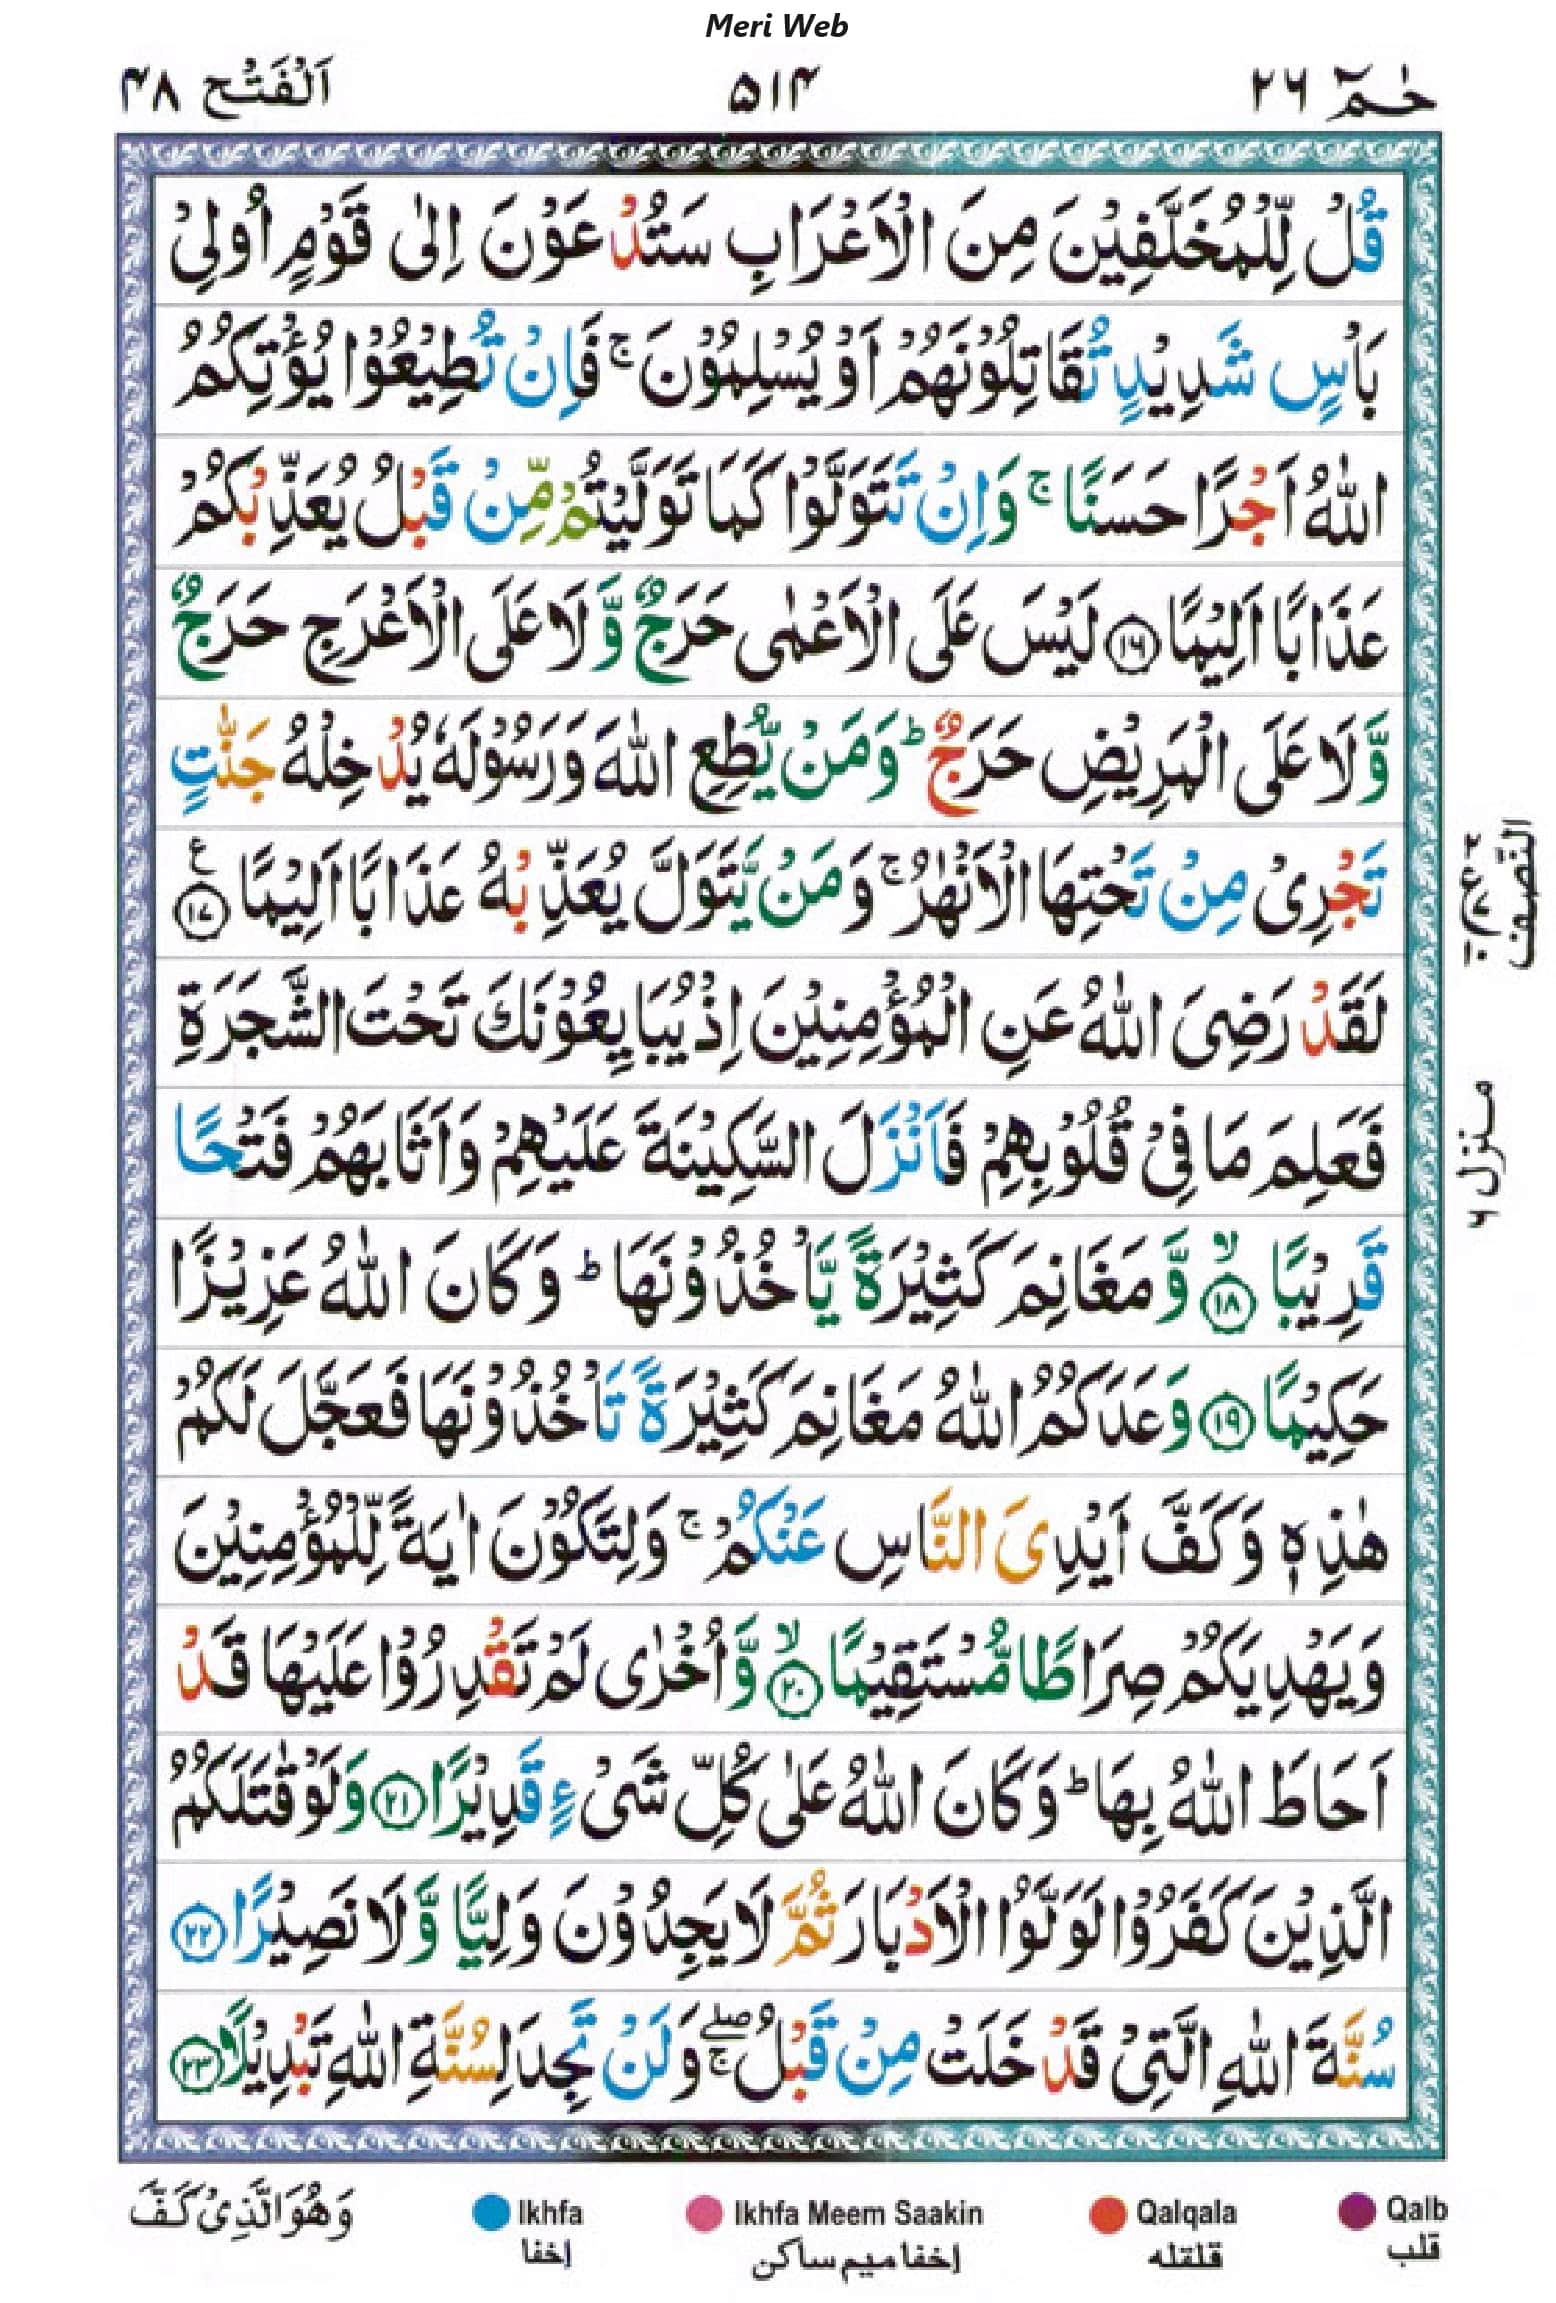 Meri Web
حٰمٓ ٢٦
٥١٤
اَلْفَتْح ٤٨
قُلْ لِّلْمُخَلَّفِيْنَ مِنَ الْاَعْرَابِ سَتُدْعَوْنَ اِلٰى قَوْمٍ اُولِيْ
بَاْسٍ شَدِيْدٍ تُقَاتِلُوْنَهُمْ اَوْ يُسْلِمُوْنَ ۚ فَاِنْ تُطِيْعُوْا يُؤْتِكُمُ
اللّٰهُ اَجْرًا حَسَنًا ۚ وَاِنْ تَتَوَلَّوْا كَمَا تَوَلَّيْتُمْ مِّنْ قَبْلُ يُعَذِّبْكُمْ
عَذَابًا اَلِيْمًا ١٦ لَيْسَ عَلَى الْاَعْمٰى حَرَجٌ وَّلَا عَلَى الْاَعْرَجِ حَرَجٌ
وَّلَا عَلَى الْمَرِيْضِ حَرَجٌ ؕ وَمَنْ يُّطِعِ اللّٰهَ وَرَسُوْلَهٗ يُدْخِلْهُ جَنّٰتٍ
تَجْرِيْ مِنْ تَحْتِهَا الْاَنْهٰرُ ۚ وَمَنْ يَّتَوَلَّ يُعَذِّبْهُ عَذَابًا اَلِيْمًا ١٧ ع
لَقَدْ رَضِيَ اللّٰهُ عَنِ الْمُؤْمِنِيْنَ اِذْ يُبَايِعُوْنَكَ تَحْتَ الشَّجَرَةِ
فَعَلِمَ مَا فِيْ قُلُوْبِهِمْ فَاَنْزَلَ السَّكِيْنَةَ عَلَيْهِمْ وَاَثَابَهُمْ فَتْحًا
قَرِيْبًا ١٨ ۙ وَّمَغَانِمَ كَثِيْرَةً يَّاْخُذُوْنَهَا ؕ وَكَانَ اللّٰهُ عَزِيْزًا
حَكِيْمًا ١٩ وَعَدَكُمُ اللّٰهُ مَغَانِمَ كَثِيْرَةً تَاْخُذُوْنَهَا فَعَجَّلَ لَكُمْ
هٰذِهٖ وَكَفَّ اَيْدِيَ النَّاسِ عَنْكُمْ ۚ وَلِتَكُوْنَ اٰيَةً لِّلْمُؤْمِنِيْنَ
وَيَهْدِيَكُمْ صِرَاطًا مُّسْتَقِيْمًا ٢٠ ۙ وَّاُخْرٰى لَمْ تَقْدِرُوْا عَلَيْهَا قَدْ
اَحَاطَ اللّٰهُ بِهَا ؕ وَكَانَ اللّٰهُ عَلٰى كُلِّ شَيْءٍ قَدِيْرًا ٢١ وَلَوْ قٰتَلَكُمُ
الَّذِيْنَ كَفَرُوْا لَوَلَّوُا الْاَدْبَارَ ثُمَّ لَا يَجِدُوْنَ وَلِيًّا وَّلَا نَصِيْرًا ٢٢
سُنَّةَ اللّٰهِ الَّتِيْ قَدْ خَلَتْ مِنْ قَبْلُ ۖۚ وَلَنْ تَجِدَ لِسُنَّةِ اللّٰهِ تَبْدِيْلًا ٢٣
النّصف
منزل ٦
Qalb
قلب
Qalqala
قلقله
Ikhfa Meem Saakin
إخفا ميم ساكن
Ikhfa
إخفا
وَهُوَالَّذِيْ كَفَّ